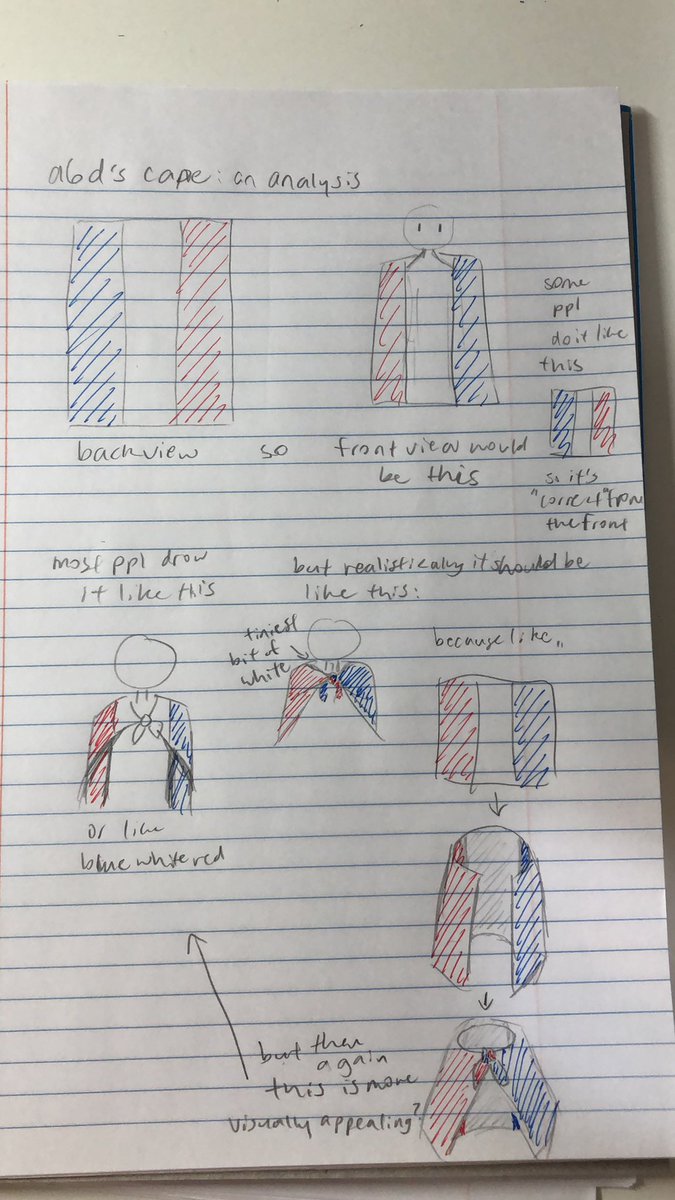 a6d's cape: an analysis
backview
so
front view would
be this
some
ppl
do it like
this
so it's
"correct" from
the front
most ppl draw
it like this
but realistically it should be
like this:
tiniest
bit of
white
because like..
or like
blue white red
but then
again
this is more
visually appealing?